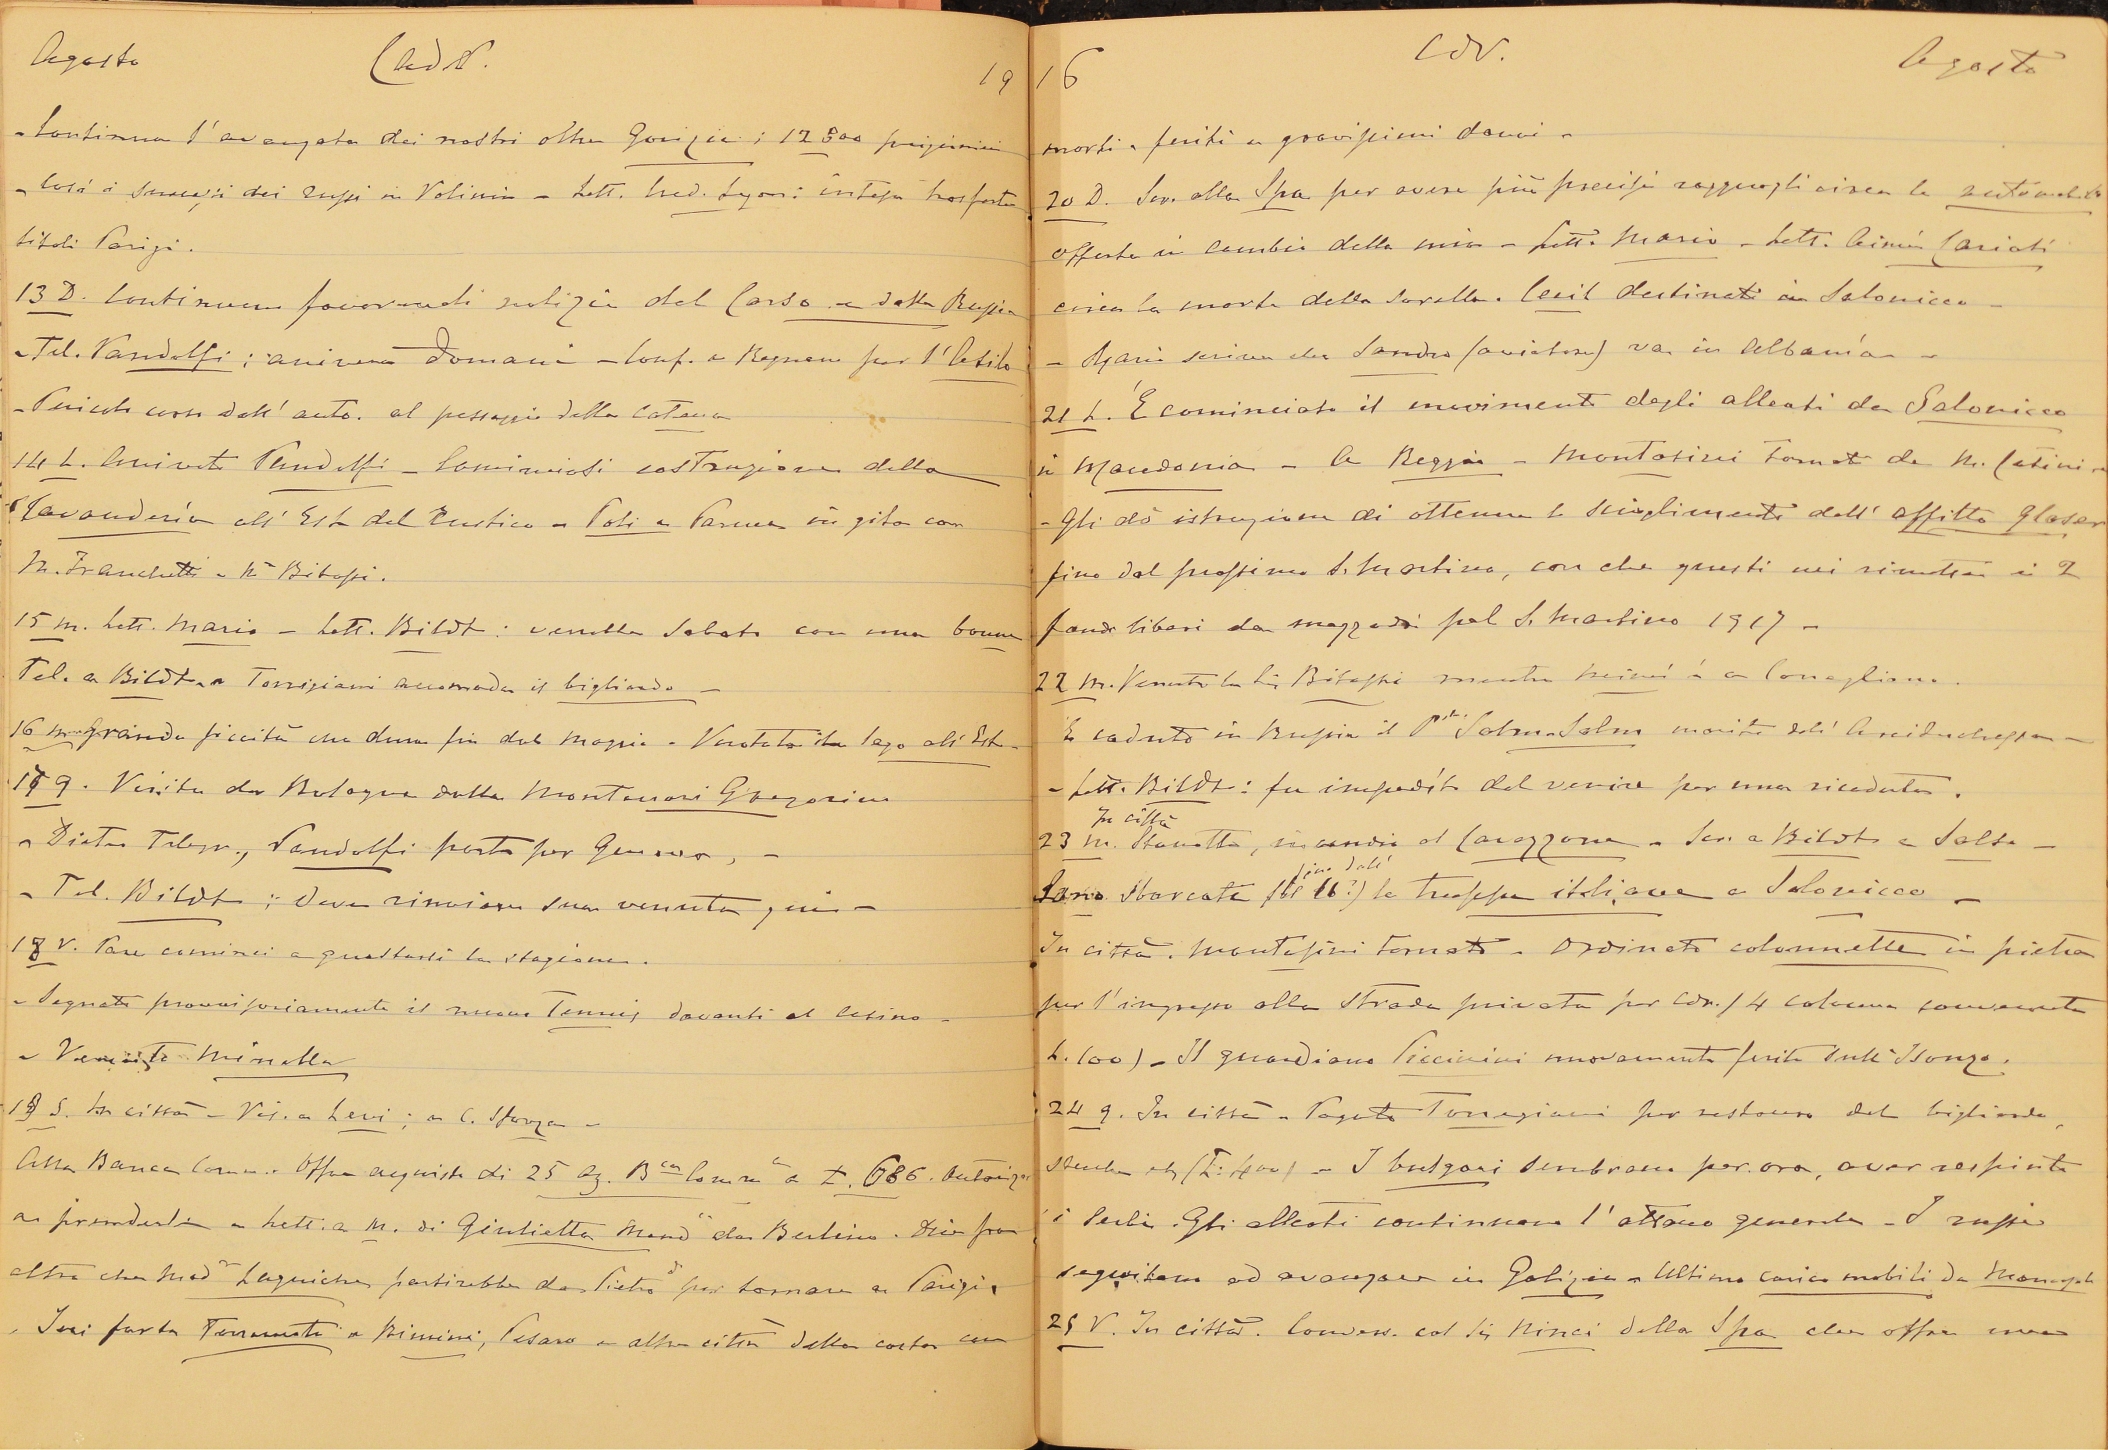 Agosto CadV. 19
- Continua l'avanzata dei nostri oltre Gorizia; 12800 prigionieri
- Così i successi dei russi in Volinia - Lett. Cred. Lyon: intesa trasferta
titoli Parigi.
13 D. Continuano favorevoli notizie dal Carso e dalla Russia
- Tel. Pandolfi: arriverà domani - Conf. a Regnano per l'Asilo
- Pericolo corso dall'auto. al passaggio della catena
14 L. Arrivato Pandolfi - Cominciasi costruzione della
lavanderia all'Est del Rustico - Poli a Parma in gita con
M. Franchetti e Bitossi.
15 M. Lett. Mario - Lett. Bildt: verrebbe Sabato con una bonne
Tel. a Bildt - Torrigiani accomoda il bigliardo -
16 M. Grande siccità che dura fin dal Maggio - Vuotato il lago all'Est -
17 g. Visita da Bologna della Montanari Gregorini
- Dietro Telegr., Pandolfi parte per Genova, -
- Tel. Bildt: deve rinviare sua venuta qui -
18 V. Pare cominci a guastarsi la stagione.
- Segnato provvisoriamente il nuovo Tennis davanti al casino -
- Venuta Minella
19 S. In città - Vis. a Levi; a C. Sforza -
Alla Banca Comm. Offre acquisto di 25 az. Bca Comm a L. 686. Autorizzo
a prenderle - Lett. a M. di Giulietta Mend da Berlino. Dice fra
altro che Mad Laguiche partirebbe da Pietro per tornare a Parigi.
- Ieri forte Terremoto a Rimini, Pesaro e altre città della costa con
16 CdV. Agosto
morti e feriti e gravissimi danni -
20 D. Scr. alla Spa per avere più precisi ragguagli circa la automobile
offerta in cambio della mia - Lett. Mario - Lett. Cariati
circa la morte della sorella. Cecil destinato a Salonicco -
- Maria scrive che Sandro (aviatore) va in Albania -
21 L. È cominciato il movimento degli alleati da Salonicco
in Macedonia - A Reggio - Montasini tornato da M. Catini
- Gli dò istruzione di ottenere lo scioglimento dell'affitto Glaser
fino dal prossimo S. Martino, con che questi mi rimetta i 2
fondi liberi da mezzadri pel S. Martino 1917 -
22 M. Venuta la Bitossi mentre Mimì è a Conegliano.
È caduto in Russia il Pe Salm-Salm marito dell'Arciduchessa -
- Lett. Bildt: fu impedito dal venire per una ricaduta.
In città
23 M. Stanotte, incendio al Cavazzone - Scr. a Bildt a Salso -
fino dall'
Sono sbarcate (il 11?) le truppe italiane a Salonicco -
In città. Montasini tornato - Ordinato colonnette in pietra
per l'ingresso alla strada privata per Cdv. (4 colonne
L. 100) - Il guardiano Piccinini nuovamente ferito sull'Isonzo.
24 g. In città - Pagato Torregiani per restauro del bigliardo,
stecche etc (L. 400) - I bulgari sembrano per ora, aver respinto
i Serbi. Gli alleati continuano l'attacco generale - I russi
seguitano ad avanzare in Galizia - Ultimo carico mobili da
25 V. In città. Convers. col Sig Ninci della Spa che offre una